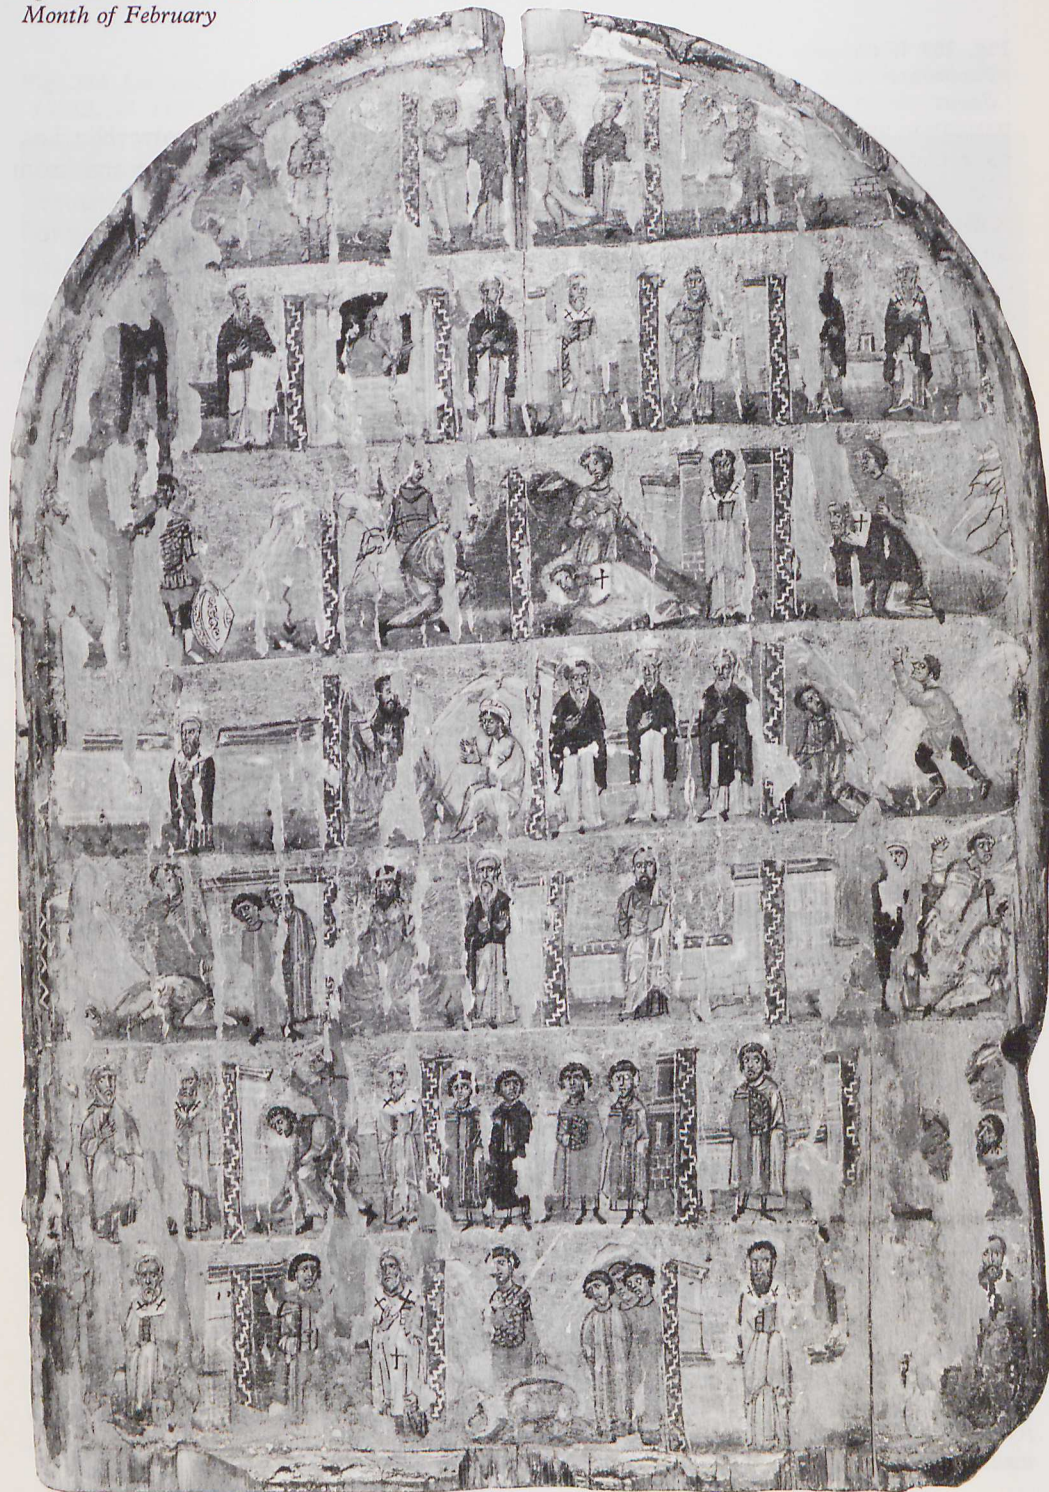 Month of February